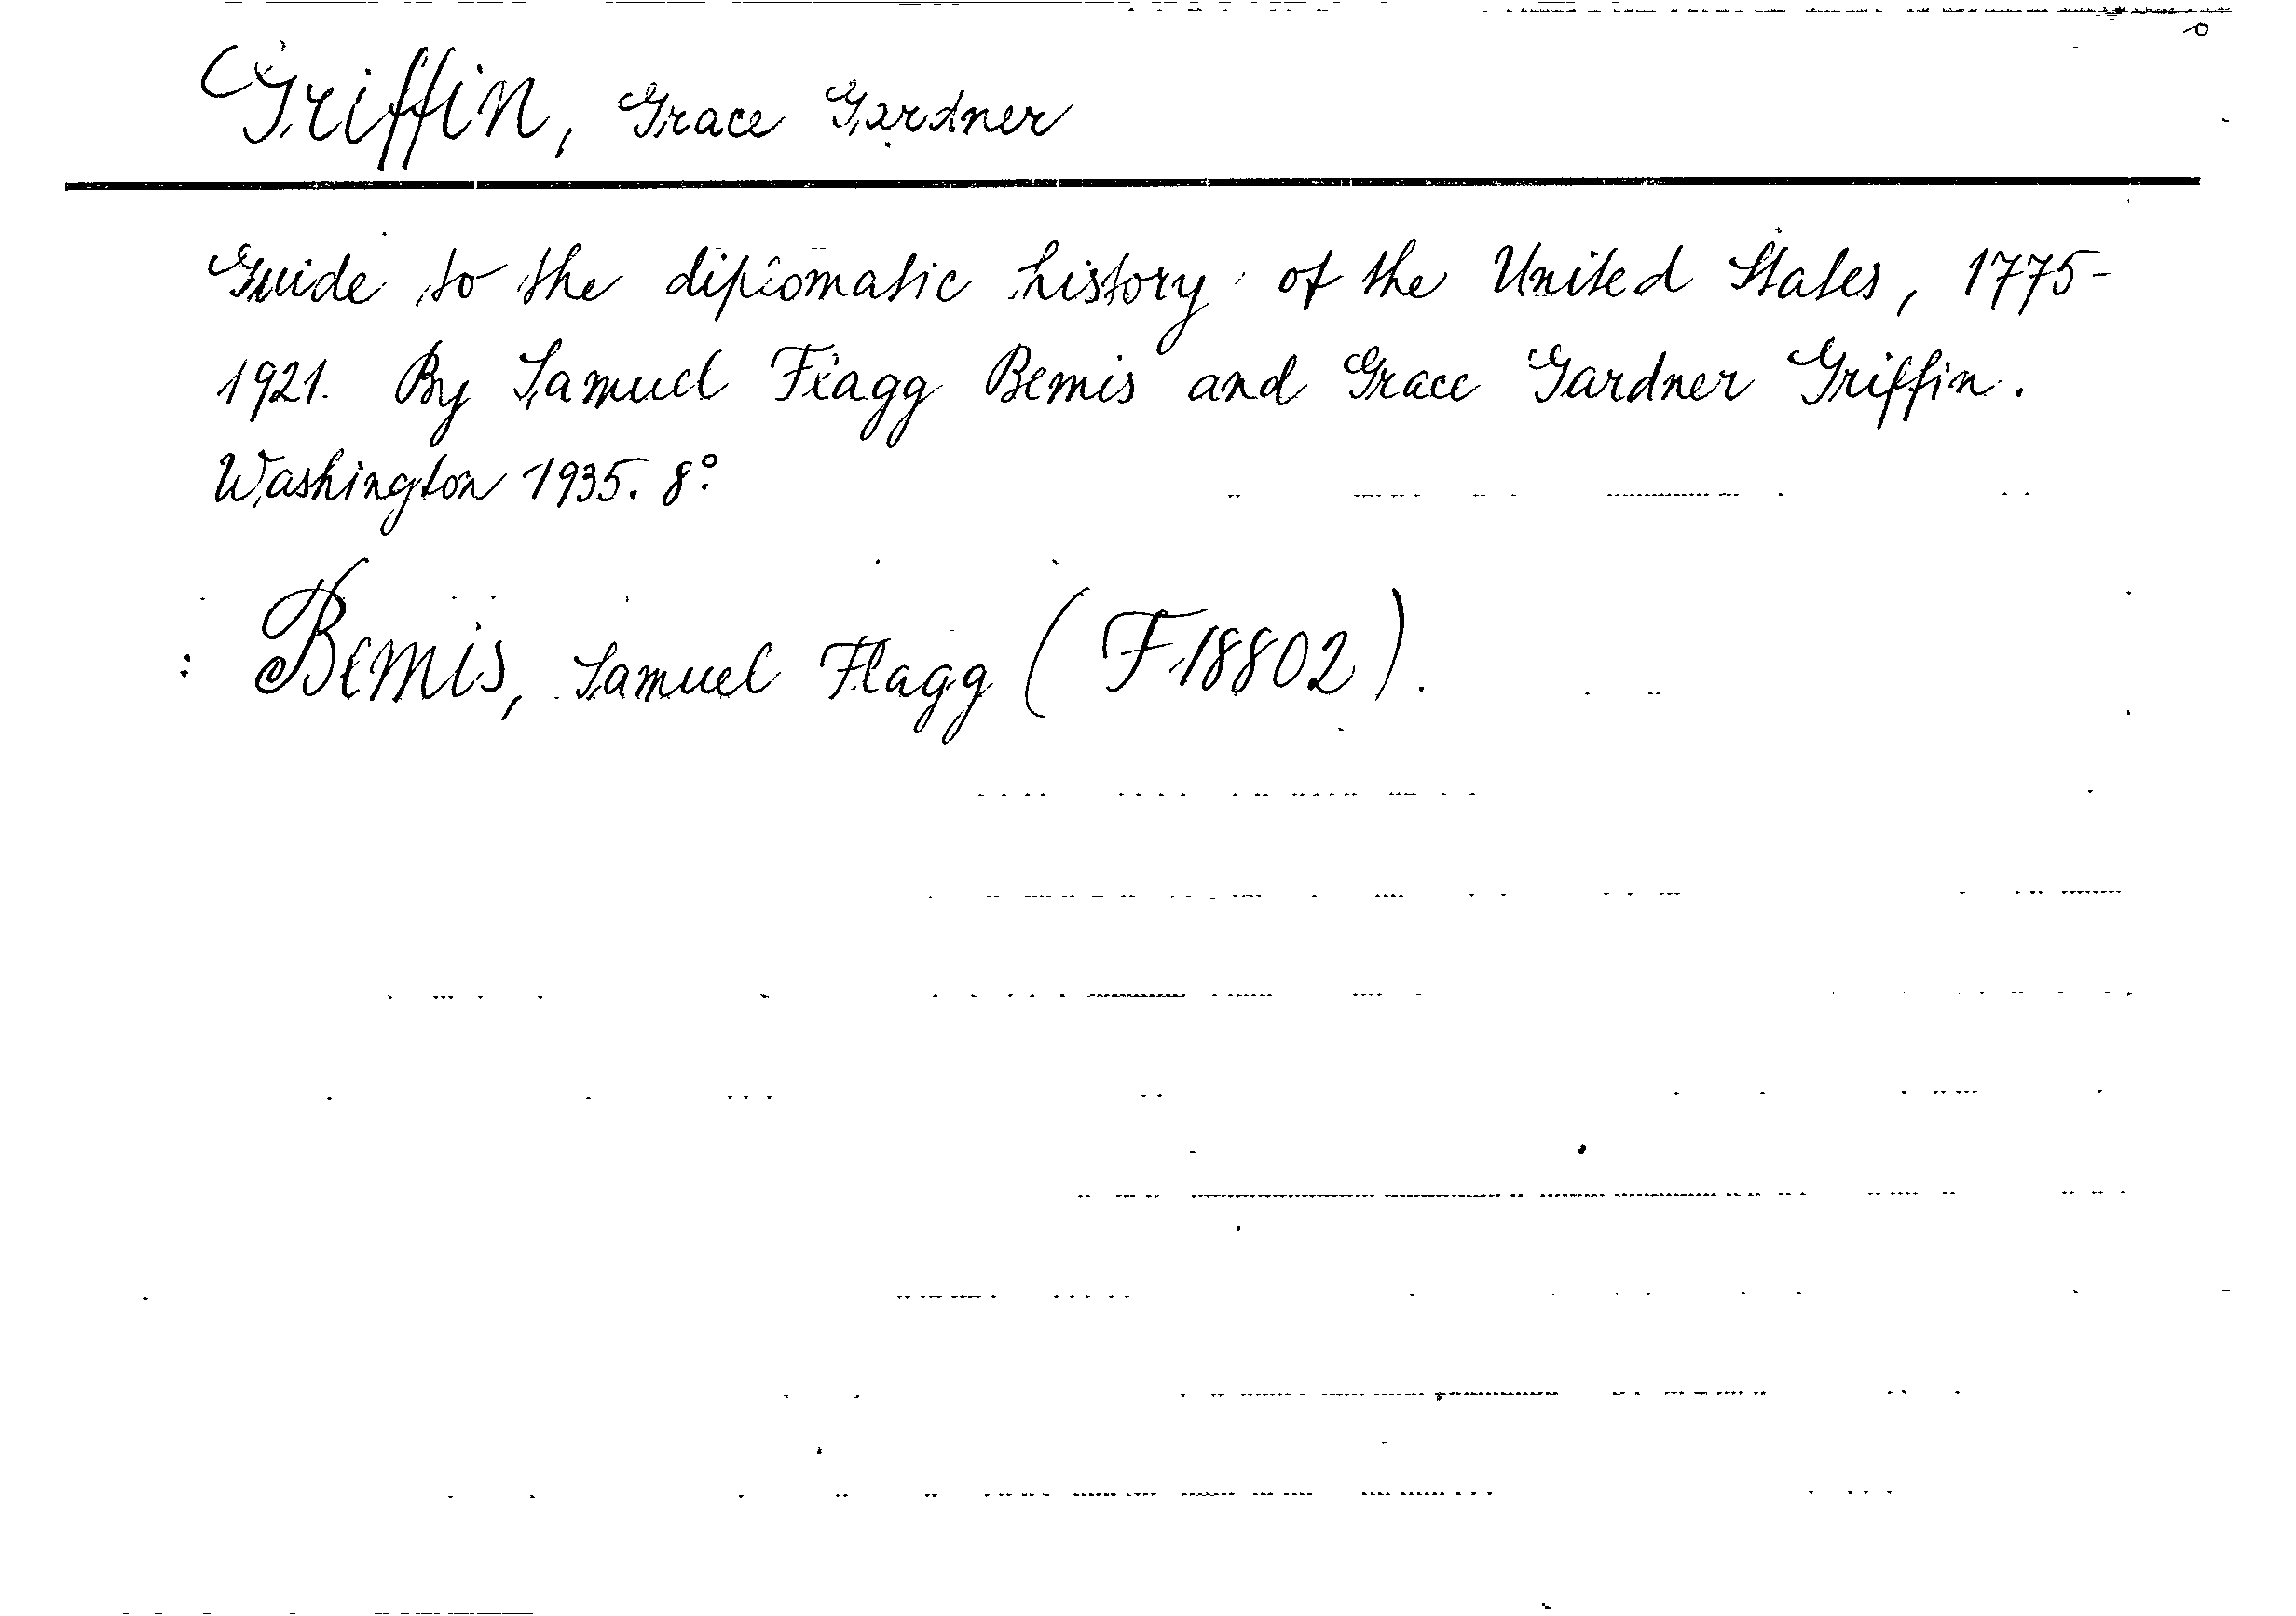 Griffin, Grace Gardner
Guide to the diplomatic history of the United States, 1775-
1921. By Samuel Flagg Bemis and Grace Gardner Griffin.
Washington 1935. 8°
: Bemis, Samuel Flagg (F 18802).